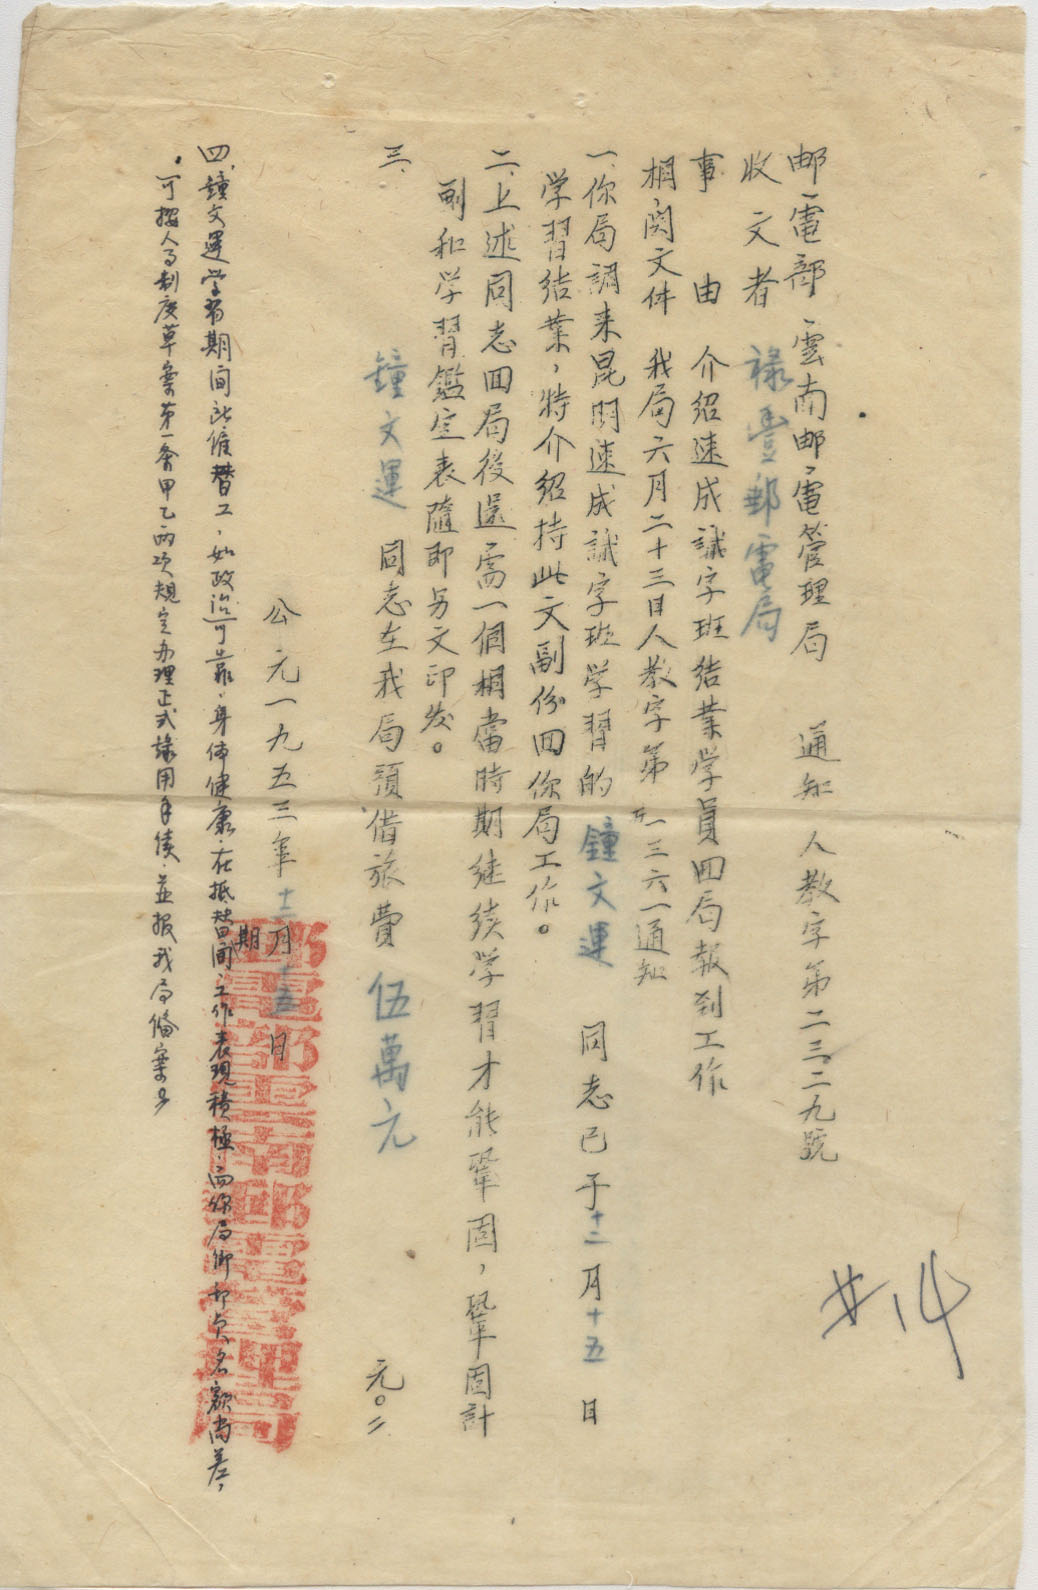 邮电部云南邮电管理局　通知　人教字第二三二九號
收文者　禄豐郵電局
事由　介紹速成識字班结業学員回局報到工作
相関文件　我局六月二十三日人教字第一三六一通知
一、你局調来昆明速成識字班学習的　鐘文運　同志已于十二月十五日
学習结業，特介紹持此文副份回你局工作。
二、上述同志回局後還需一個相當時期继续学習才能鞏固，鞏固計
劃和学習鑑定表隨即另文印发。
三、鐘文運　同志在我局預借旅費　伍萬元　元〇二
公元一九五三年十二月十五日
四、鐘文運学習期间所僱替工，如政治可靠，身体健康，在抵替期间工作表现積極，而你局邮员名額尚差，
可按人事制度草案第一条甲乙兩项規定办理正式録用手续，並报我局俻案
邮電部雲南邮電管理局
廿14